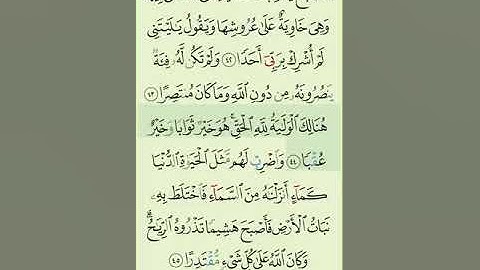 وَهِىَ خَاوِيَةٌ عَلَىٰ عُرُوشِهَا وَيَقُولُ يَٰلَيْتَنِى
لَمْ أُشْرِكْ بِرَبِّىٓ أَحَدًا ٤٢ وَلَمْ تَكُن لَّهُۥ فِئَةٌ
يَنصُرُونَهُۥ مِن دُونِ ٱللَّهِ وَمَا كَانَ مُنتَصِرًا ٤٣
هُنَالِكَ ٱلْوَلَٰيَةُ لِلَّهِ ٱلْحَقِّ هُوَ خَيْرٌ ثَوَابًا وَخَيْرٌ
عُقْبًا ٤٤ وَٱضْرِبْ لَهُم مَّثَلَ ٱلْحَيَوٰةِ ٱلدُّنْيَا
كَمَآءٍ أَنزَلْنَٰهُ مِنَ ٱلسَّمَآءِ فَٱخْتَلَطَ بِهِۦ
نَبَاتُ ٱلْأَرْضِ فَأَصْبَحَ هَشِيمًا تَذْرُوهُ ٱلرِّيَٰحُ ۗ
وَكَانَ ٱللَّهُ عَلَىٰ كُلِّ شَىْءٍ مُّقْتَدِرًا ٤٥